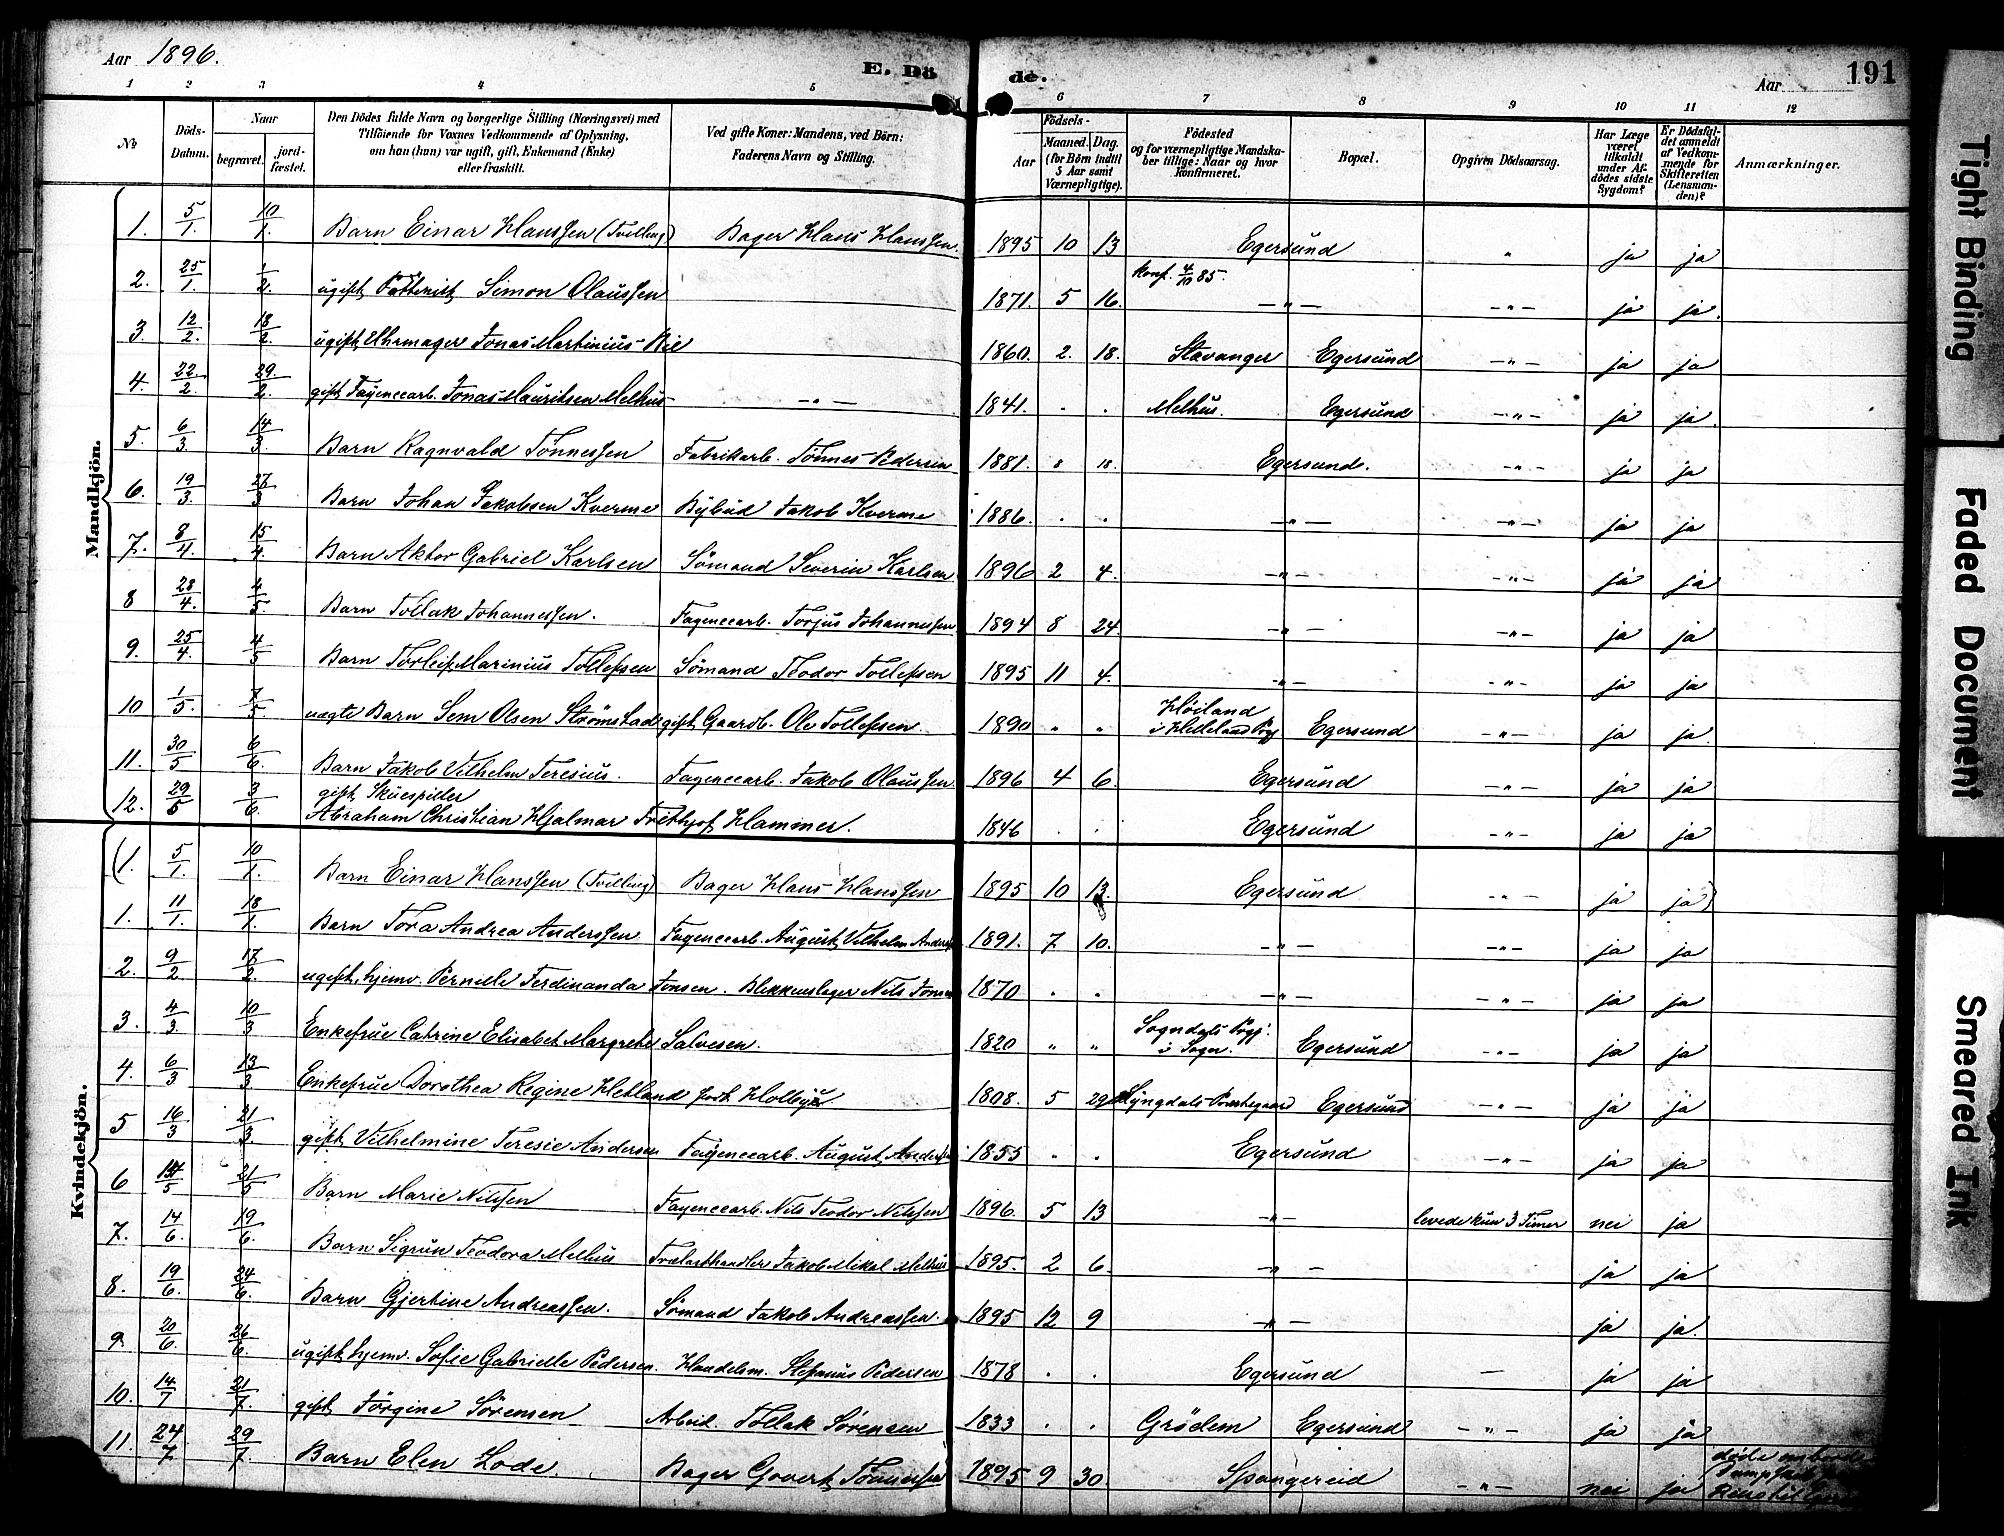 Aar 1896. E. Dö de. Aar 191
1 2 3 4 5 6 7 8 9 10 11 12
No Döds-Datum. Naar begravet. jord-fæstet. Den Dödes fulde Navn og borgerlige Stilling (Næringsvei) med Tilföiende for Voxnes Vedkommende af Oplysning, om han (hun) var ugift, gift, Enkemand (Enke) eller fraskilt. Ved gifte Koner: Mandens, ved Börn: Faderens Navn og Stilling. Födsels- Aar Maaned. Dag. (for Börn indtil 5 Aar samt Værnepligtige). Födested og for værnepligtige Mandskaber tillige: Naar og hvor konfirmeret. Bopæl. Opgiven Dödsaarsag. Har Læge været tilkaldt under Afdödes sidste Sygdom? Er Dödsfaldet anmeldt af Vedkommende for Skifteretten (Lensmanden)? Anmærkninger.
Mandkjön.
1. 5/1. 10/1. Barn Einar Hanssen (Tvilling) Bager Hans Hanssen. 1895 10 13 Egersund " ja ja
2. 25/1. 1/2. ugift Simon Olaussen 1871. 5 16. Konf. 4/10 85. —"— —"— ja ja.
3. 12/2. 18/2. ugift Uhrmager Jonas Martinius Bie 1860. 2. 18. Stavanger Egersund —"— ja ja
4. 22/2. 29/2. gift Fayencearb. Jonas Mauritsen Melhus —"— 1841. . . Melhus. Egersund —"— ja ja.
5. 6/3. 14/3. Barn Ragnvald Tönnessen Fabrikarb. Tönnes Pedersen 1881. 8 18. Egersund. —"— ja ja
6. 19/3. 27/3 Barn Johan Jakobsen Kverme Bybud Jakob Kverme 1886. . . —"— —"— ja ja
7. 8/4. 15/4. Barn Aktor Gabriel Karlsen Sömand Severin Karlsen 1896 2 4. —"— —"— ja ja
8 28/4. 4/5. Barn Tollak Johannessen. Fayencearb. Torjus Johannessen 1894 8 24 —"— —"— ja ja
9. 25/4. 4/5 Barn Torleif Marinius Tollefsen Sömand Teodor Tollefsen 1895 11 4. —"— —"— ja ja
10 1/5. 7/5. uægte Barn Sem Olsen Strömstad gift Gaardb. Ole Tollefsen. 1890 " " Höiland i Helleland Pgj Egersund —"— ja ja.
11. 30/5 6/6. Barn Jakob Vilhelm Teresius. Fayencearb. Jakob Olaussen 1896 4 6. Egersund —"— ja ja
12. 29/5 3/6. gift Skuespiller
Abraham Christian Hjalmar Frithjof Hammer. 1846 . . Egersund —"— ja ja
Kvindekjön.
(1. 5/1. 10/1. Barn Einar Hanssen (Tvilling) Bager Hans Hanssen 1895 10 13. Egersund —"— ja ja)
1. 11/1. 18/1. Barn Tora Andrea Anderssen Fayencearb. August Vilhelm Anders 1891. 7 10. —"— —"— ja ja
2. 9/2 17/2. ugift, hjemv. Pernille Ferdinanda Jonsen. Blikkenslager Nils Jonsen 1870 . . —"— —"— ja ja
3. 4/3 10/3 Enkefrue Catrine Elisabet Margrete Salvesen. 1820 " " Sogndals Pgj. i Soger. Egersund —"— ja ja
4. 6/3 13/3 Enkefrue Dorothea Regine Hetland 1808. 5 29 Lyngdals Præstegaard Egersund —"— ja ja
5 16/3 21/3. gift Vilhelmine Teresie Andersen Fayencearb. August Anders 1855 . . Egersund —"— ja ja
6 14/5 21/5 Barn Marie Nilssen Fayencearb. Nils Teodor Nilssen 1896. 5 13 —"— levede kun 3 Timer nei ja
7. 14/6. 19/6. Barn Sigrun Teodora Melhus Trælasthandler Jakob Mikal Melhus 1895. 2 6. —"— ja ja
8. 19/6. 24/6. Barn Gjertine Andreassen. Sömand Jakob Andreassen. 1895 12 9 —"— ja ja.
9 20/6. 26/6. ugift hjemv. Sofie Gabrielle Pedersen. Handelsm. Stefanus Pedersen 1878 . . Egersund — ja ja
10. 14/7 21/7. gift Jörgine Sörensen Arbeid. Tollak Sörensen 1833 . . Grödem Egersund —"— ja ja
11. 24/7 29/7. Barn Elen Lode. Bager Govert Tönnessen 1895 9 30. Spangereid —"— nei ja
Tight Binding
Faded Document
Smeared Ink